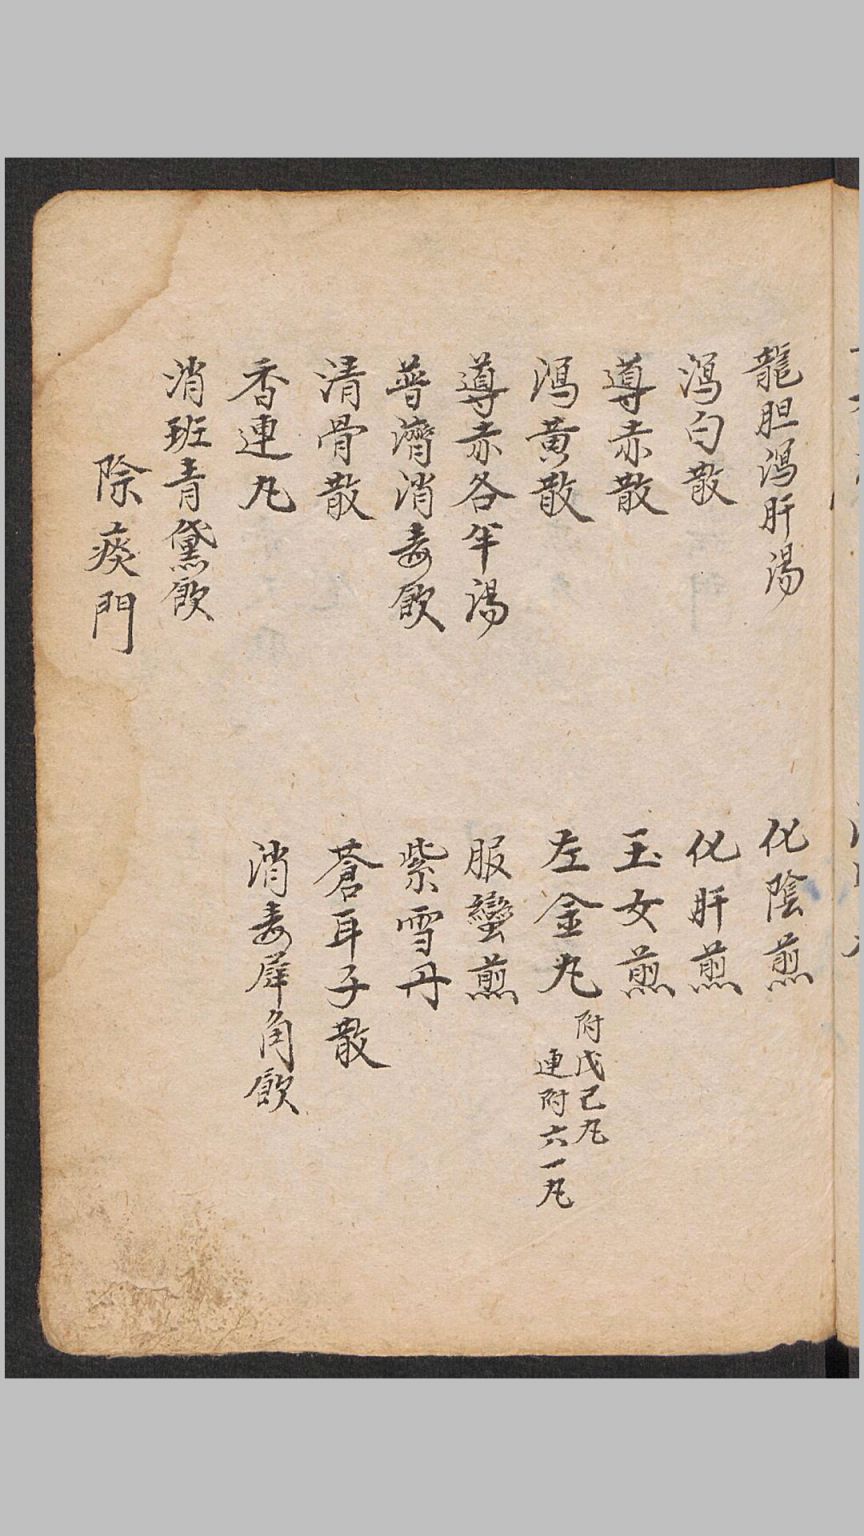 龍胆瀉肝湯
化陰煎
瀉白散
化肝煎
導赤散
玉女煎
瀉黃散
左金丸 附戊己丸
連附六一丸
導赤各半湯
服蠻煎
普濟消毒飲
紫雪丹
清骨散
蒼耳子散
香連丸
消毒犀角飲
消班青黛飲
除痰門